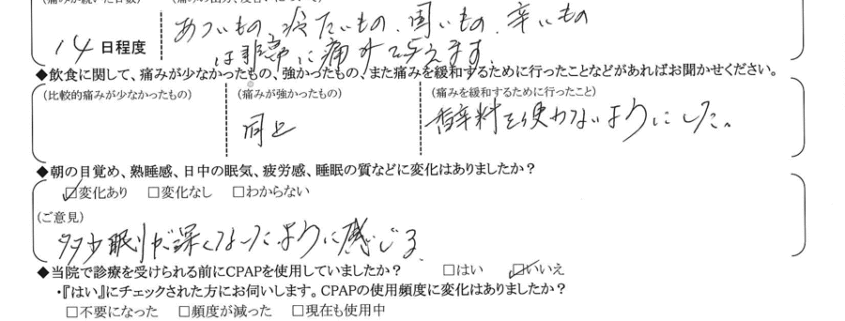 (痛みが続いた日数)
14日程度
あついもの、冷たいもの、固いもの、辛いもの
は非常に痛かったです。
◆飲食に関して、痛みが少なかったもの、強かったもの、また痛みを緩和するために行ったことなどがあればお聞かせください。
(比較的痛みが少なかったもの) (痛みが強かったもの) (痛みを緩和するために行ったこと)
同上 香辛料を使わないようにした。
◆朝の目覚め、熟睡感、日中の眠気、疲労感、睡眠の質などに変化はありましたか？
☑変化あり □変化なし □わからない
(ご意見)
多少眠りが深くなったように感じる。
◆当院で診療を受けられる前にCPAPを使用していましたか？ □はい ☑いいえ
・『はい』にチェックされた方にお伺いします。CPAPの使用頻度に変化はありましたか？
□不要になった □頻度が減った □現在も使用中